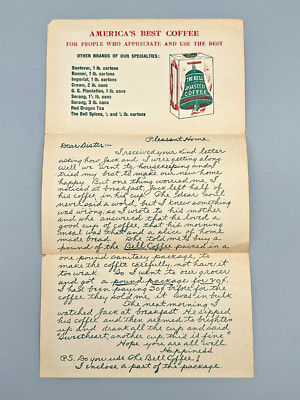 AMERICA'S BEST COFFEE
FOR PEOPLE WHO APPRECIATE AND USE THE BEST
OTHER BRANDS OF OUR SPECIALTIES:
Santovar, 1 lb. cartons
Banner, 1 lb. cartons
Imperial, 1 lb. cartons
Crown, 2 lb. cans
O. G. Plantation, 1 lb. cans
Serang, 1½ lb. cans
Serang, 3 lb. cans
Red Dragon Tea
The Bell Spices, ¼ and ½ lb. cans
THE BELL
ROASTED
COFFEE
Pleasant Home.
Dear Sister:-
I received your kind letter
asking how Jack and I were getting along
well we went to housekeeping and I
tried my best to make our new home
happy. But one thing worried me, I
noticed at breakfast Jack left half of
his coffee in his cup. The dear boy
never said a word, but I knew something
was wrong, so I wrote to his mother
and she answered that he loved a
good cup of coffee, that his morning
meal was that and a slice of home
made bread. She told me to buy a
pound of the Bell Coffee packed in a
one pound sanitary package, to
make the coffee carefully, not have it
too weak. So I went to our grocer
and got a pound package for 30¢.
I had been paying 30¢ before for the
coffee they sold me, it was in bulk
The next morning I
watched Jack at breakfast. He sipped
his coffee and then seemed to brighten
up and drank all the cup and said,
"Sweetheart, another cup, this is fine"
Hope you are all well.
Happiness
P.S. Do you use The Bell Coffee?
I inclose a part of the package.